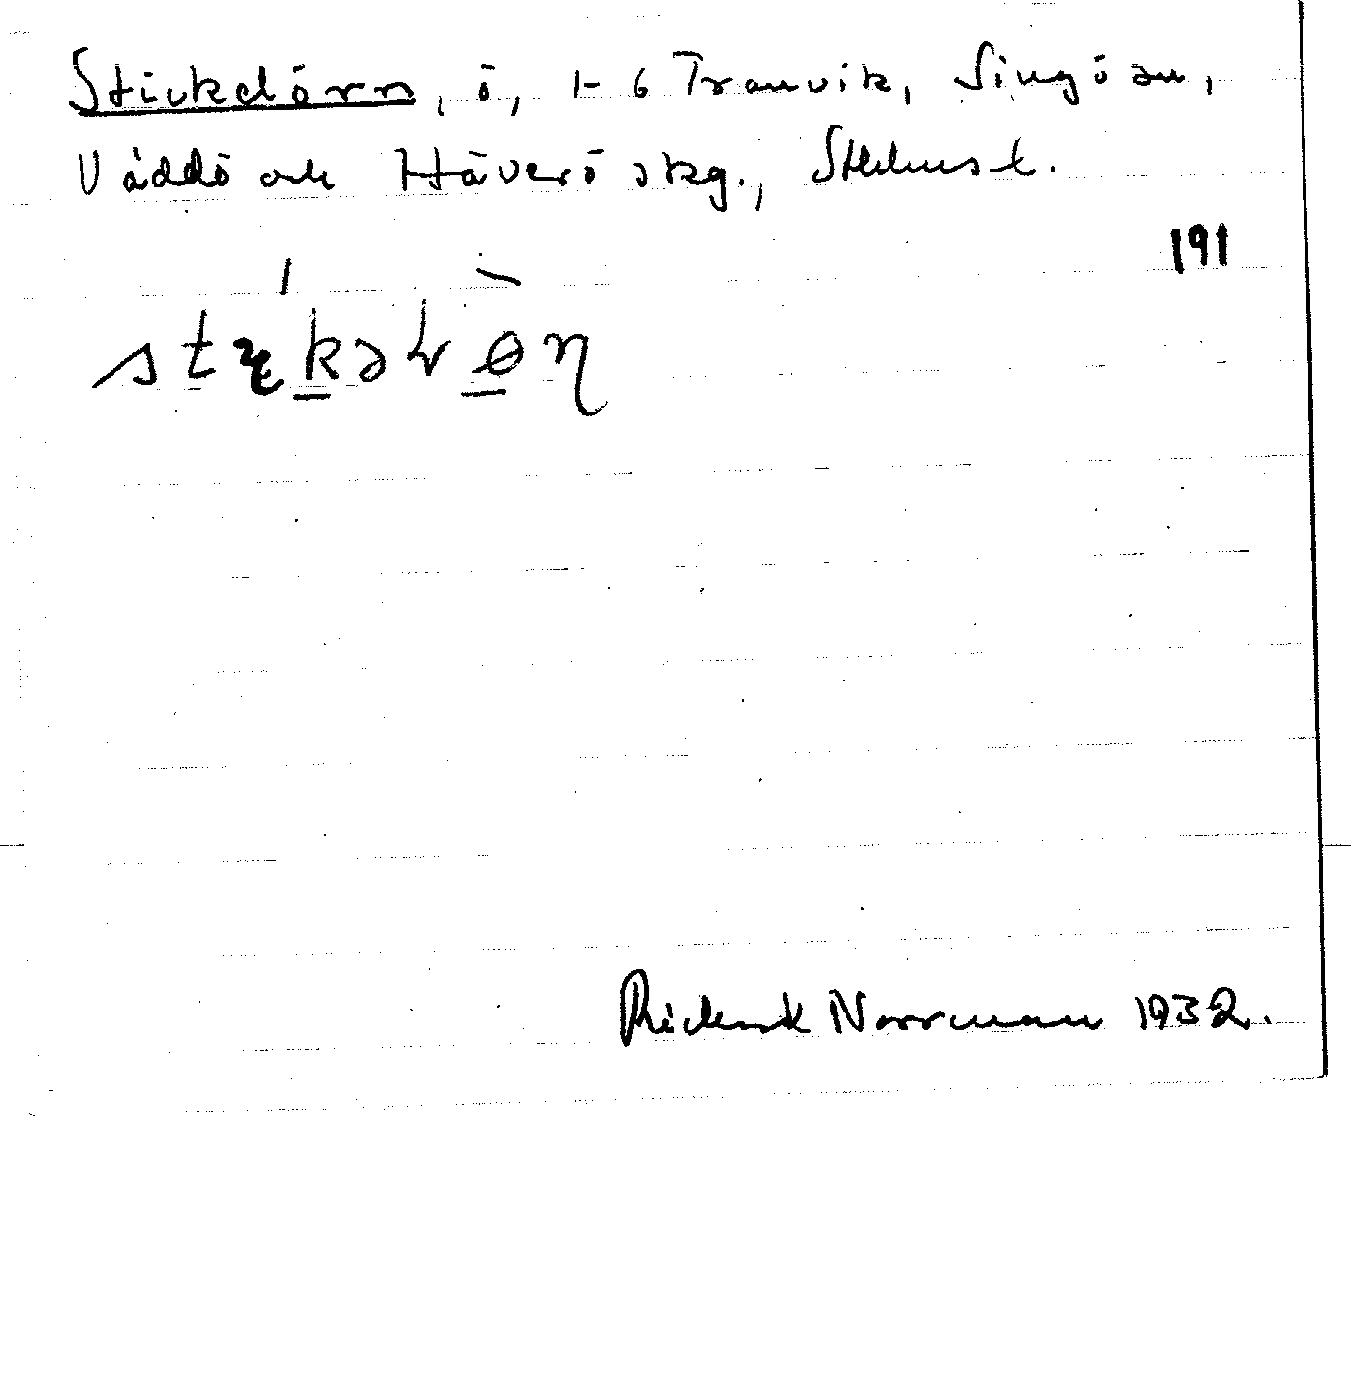 Stickdörn, ö, 1-6 Tranvik, Singö sn,
Väddö och Häverö skg., Sthlms l.
191
Rickard Norrman 1932.